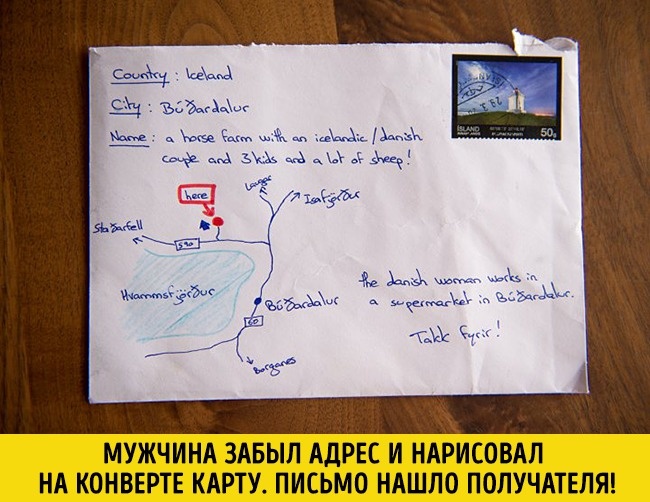 Country : Iceland
City : Búðardalur
Name : a horse farm with an icelandic/danish
couple and 3 kids and a lot of sheep!
ÍSLAND
50g
here
Laugar
Ísafjörður
Staðarfell
590
Hvammsfjörður
Búðardalur
60
Borganes
the danish woman works in
a supermarket in Búðardalur.
Takk fyrir!
МУЖЧИНА ЗАБЫЛ АДРЕС И НАРИСОВАЛ
НА КОНВЕРТЕ КАРТУ. ПИСЬМО НАШЛО ПОЛУЧАТЕЛЯ!